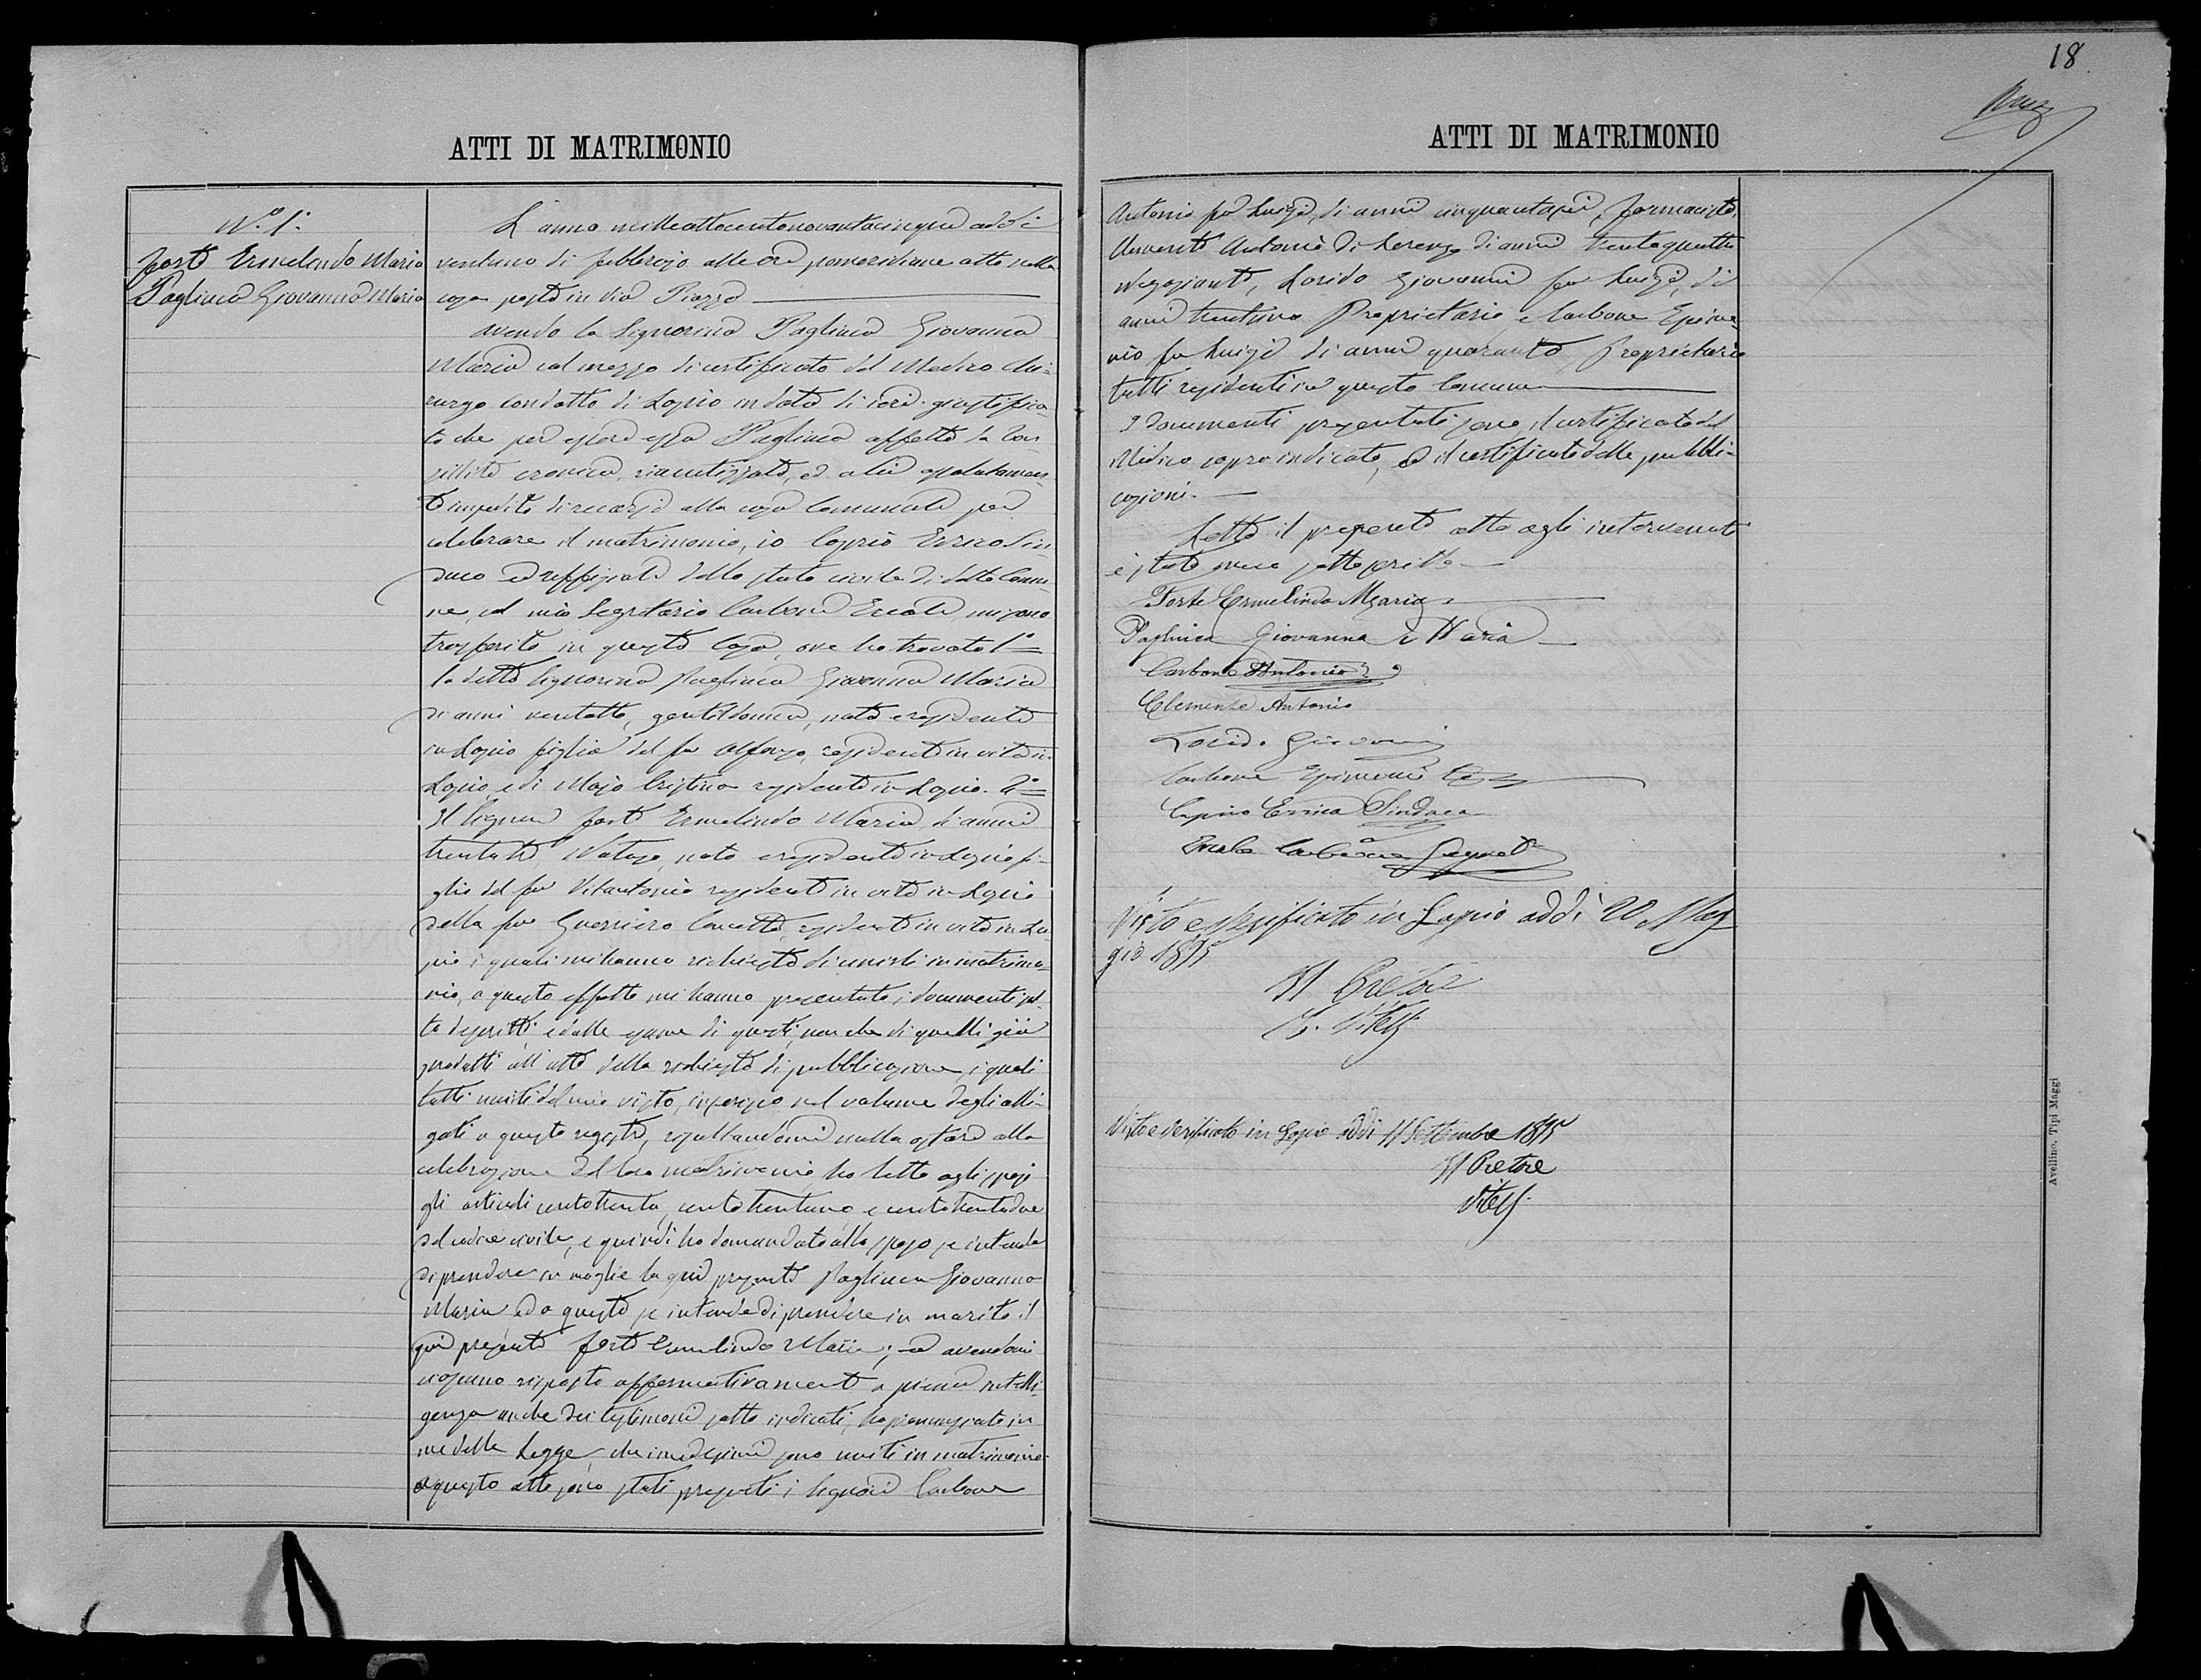 18
ATTI DI MATRIMONIO
N.º 1.
Forte Ermelindo Maria
Pagliuca Giovanna Maria
L'anno milleottocentonovantacinque addì
ventuno di febbrajo alle ore pomeridiane otto nella
casa posta in via Piazza
avendo la Signorina Pagliuca Giovanna
Maria col mezzo di certificato del Medico Chi-
rurgo condotto di Lapio in data di ieri giustifica-
to che per essere essa Pagliuca affetta da ton
sillite cronica, riacutizzata, ed a lei assolutamen-
te impedito di recarsi alla casa Comunale per
celebrare il matrimonio, io Caprio Errico Sin
daco ed uffiziale dello stato civile di detto Comu-
ne, col mio Segretario Carbone Ercole mi sono
trasferito in questa casa, ove ho trovato 1º
la detta Signorina Pagliuca Giovanna Maria
di anni ventotto, gentildonna, nata e residente
in Lapio figlia del fu Alfonso, residente in vita in
Lapio, e di Majo Cristina residente in Lapio. 2º
Il Signor Forte Ermelindo Maria, di anni
trentatre Notajo, nato e residente in Lapio fi-
glio del fu Vitantonio residente in vita in Lapio
della fu Guerriero Concetta, residente in vita in La-
pio i quali mi hanno richiesto di unirli in matrimo-
nio, a questo effetto mi hanno presentato i documenti sot-
to descritti; e dalle esame di questi, non che di quelli già
prodotti all'atto della richiesta di pubblicazione, i quali
tutti muniti del mio visto, inserisco nel volume degli alle-
gati a questo registro, risultandomi nulla ostare alla
celebrazione del loro matrimonio, ho letto agli sposi
gli articoli centotrenta, centotrentuno e centotrentadue
del codice civile, e quindi ho domandato allo sposo se intende
di prendere in moglie la qui presente Pagliuca Giovanna
Maria ed a questa se intende di prendere in marito il
qui presente Forte Ermelindo Maria; ed avendomi
ciascuno risposto affermativamente a piena intelli-
genza anche dei testimoni sotto indicati, ho pronunziato in
me della Legge che i medesimi sono uniti in matrimonio.
A questo atto sono stati presenti i Signori Carbone
ATTI DI MATRIMONIO
Antonio fu Luigi, di anni cinquantasei, farmacista,
Clemente Antonio di Lorenzo di anni trentaquattro
Negoziante, Lorido Giovanni fu Luigi, di
anni trentuno Proprietario e Carbone Epime-
nio fu Luigi di anni quaranta Proprietario
tutti residenti in questo Comune
I documenti presentati sono, il certificato del
Medico sopra indicato, ed il certificato delle pubbli-
cazioni.
Letto il presente atto agli intervenuti
è stato meco sottoscritto
Forte Ermelindo Maria
Pagliuca Giovanna Maria
Carbone Antonio
Clemente Antonio
Lorido Giovanni
Carbone Epimenio
Caprio Errico Sindaco
Ercole Carbone Segret
Visto e verificato in Lapio addì 20 Mag
gio 1895
Il Pretore
Vitelli
Visto e verificato in Lapio addì 11 Settembre 1895
Il Pretore
Vitelli
Avellino. Tipi Maggi